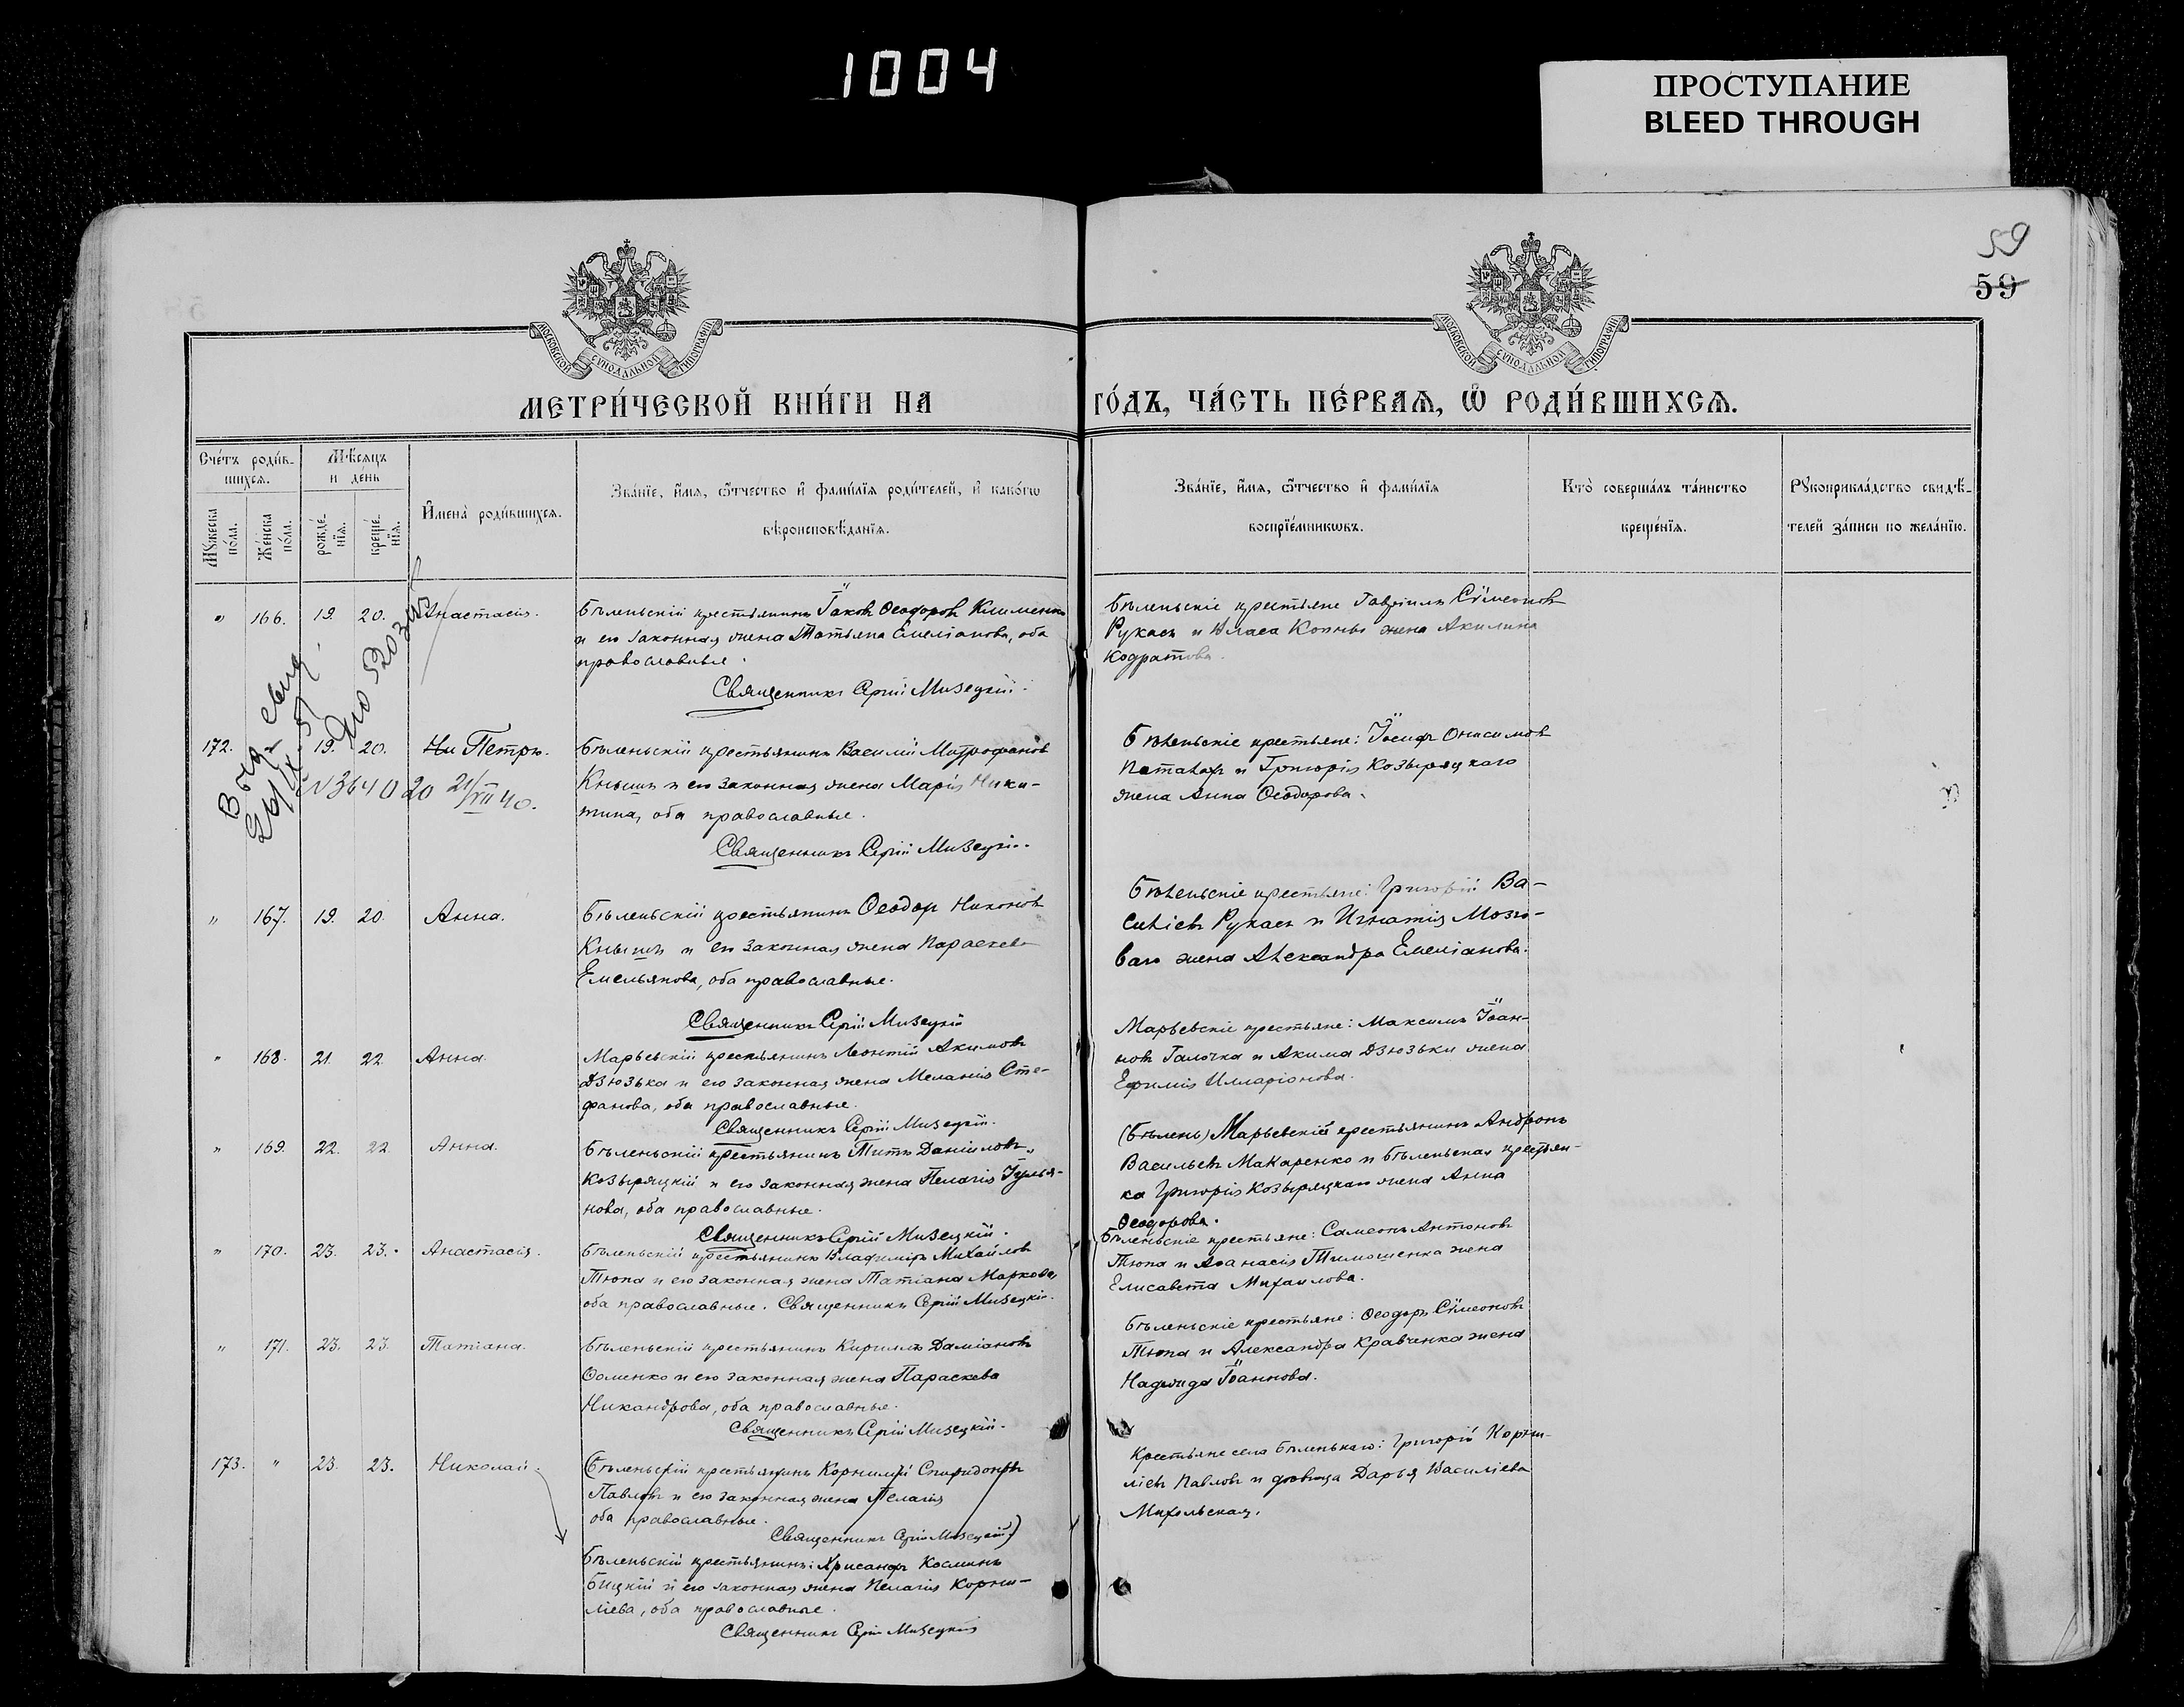 1004
ПРОСТУПАНИЕ
BLEED THROUGH
59
59
МОСКОВСКОЙ СѴНОДАЛЬНОЙ ТИПОГРАФІИ
МОСКОВСКОЙ СѴНОДАЛЬНОЙ ТИПОГРАФІИ
МЕТРИ́ЧЕСКОЙ КНИ́ГИ НА
ГО́ДЪ, ЧА́СТЬ ПЕ́РВАѦ, Ѡ҆ РОДИ́ВШИХСѦ.
Сче́тъ роди́в-
шихсѧ.
Мꙋ́жеска по́ла.
Же́нска по́ла.
Мѣ́сѧцъ
и де́нь
рожде́-
нїѧ.
креще́-
нїѧ.
И҆мена̀ роди́вшихсѧ.
Зва́нїе, и҆́мѧ, ѻ҆́тчество и҆ фами́лїѧ роди́телей, и҆ како́гѡ
вѣроисповѣ́данїѧ.
Зва́нїе, и҆́мѧ, ѻ҆́тчество и҆ фами́лїѧ
воспрїе́мникѡвъ.
Кто̀ соверша́лъ та́инство
креще́нїѧ.
Рꙋкоприкла́дство свидѣ́-
телей за́писи по жела́нїю.
" 166. 19. 20. Анастасія.
Бѣленьскій крестьянинъ Іаковъ Ѳеодоровъ Клименко
и его законная жена Татьяна Емеліанова, оба
православные.
Священникъ Сергій Мизецкій.
Бѣленьскіе крестьяне Гавріилъ Сѵмеоновъ
Рукасъ и Власа Копны жена Акилина
Кодратова.
Выд. свид.
172. 19. 20. Ни Петръ.
№ 3640 20 21/VII 40.
Бѣленьскій крестьянинъ Василій Митрофановъ
Кнышъ и его законная жена Марія Ники-
тина, оба православные.
Священникъ Сергій Мизецкій.
Бѣленьскіе крестьяне: Іосифъ Онисимовъ
Паталахъ и Григорія Козыряцкаго
жена Анна Ѳеодорова.
" 167. 19. 20. Анна.
Бѣленьскій крестьянинъ Ѳеодоръ Никоновъ
Кнышъ и его законная жена Параскева
Емельянова, оба православные.
Священникъ Сергій Мизецкій
Бѣленьскіе крестьяне: Григорій Ва-
силіевъ Рукасъ и Игнатія Мозго-
ваго жена Александра Емеліанова.
" 168. 21. 22 Анна.
Марьевскій крестьянинъ Леонтій Акимовъ
Дзюзька и его законная жена Меланія Сте-
фанова, оба православные.
Священникъ Сергій Мизецкій.
Марьевскіе крестьяне: Максимъ Іоан-
новъ Галочка и Акима Дзюзьки жена
Ефимія Илларіонова.
" 169. 22. 22. Анна.
Бѣленьскій крестьянинъ Титъ Даніиловъ
Козыряцкій и его законная жена Пелагія Іулья-
нова, оба православные.
Священникъ Сергій Мизецкій.
(Бѣлень) Марьевскій крестьянинъ Андронъ
Васильевъ Макаренко и бѣленьская крестьян-
ка Григорія Козыряцкаго жена Анна
Ѳеодорова.
" 170. 23. 23. Анастасія.
Бѣленьскій крестьянинъ Владиміръ Михайловъ
Тюпа и его законная жена Татіана Маркова,
оба православные. Священникъ Сергій Мизецкій.
Бѣленьскіе крестьяне: Самсонъ Антоновъ
Тюпа и Аѳанасія Тимошенка жена
Елисавета Михаилова.
" 171. 23. 23. Татіана.
Бѣленьскій крестьянинъ Кириллъ Даміановъ
Ѳоменко и его законная жена Параскева
Никандрова, оба православные.
Священникъ Сергій Мизецкій.
Бѣленьскіе крестьяне: Ѳеодоръ Сѵмеоновъ
Тюпа и Александра Кравченка жена
Надежда Іоаннова.
173. " 23. 23. Николай.
(Бѣленьскій крестьянинъ Корнилій Спиридоновъ
Павловъ и его законная жена Пелагія
оба православные.
Священникъ Сергій Мизецкій)
Бѣленьскій крестьянинъ: Хрисанфъ Косминъ
Бицкій и его законная жена Пелагія Корни-
ліева, оба православные.
Священникъ Сергій Мизецкій
Крестьяне села Бѣленькаго: Григорій Корни-
ліевъ Павловъ и девица Дарья Василіева
Михольская.